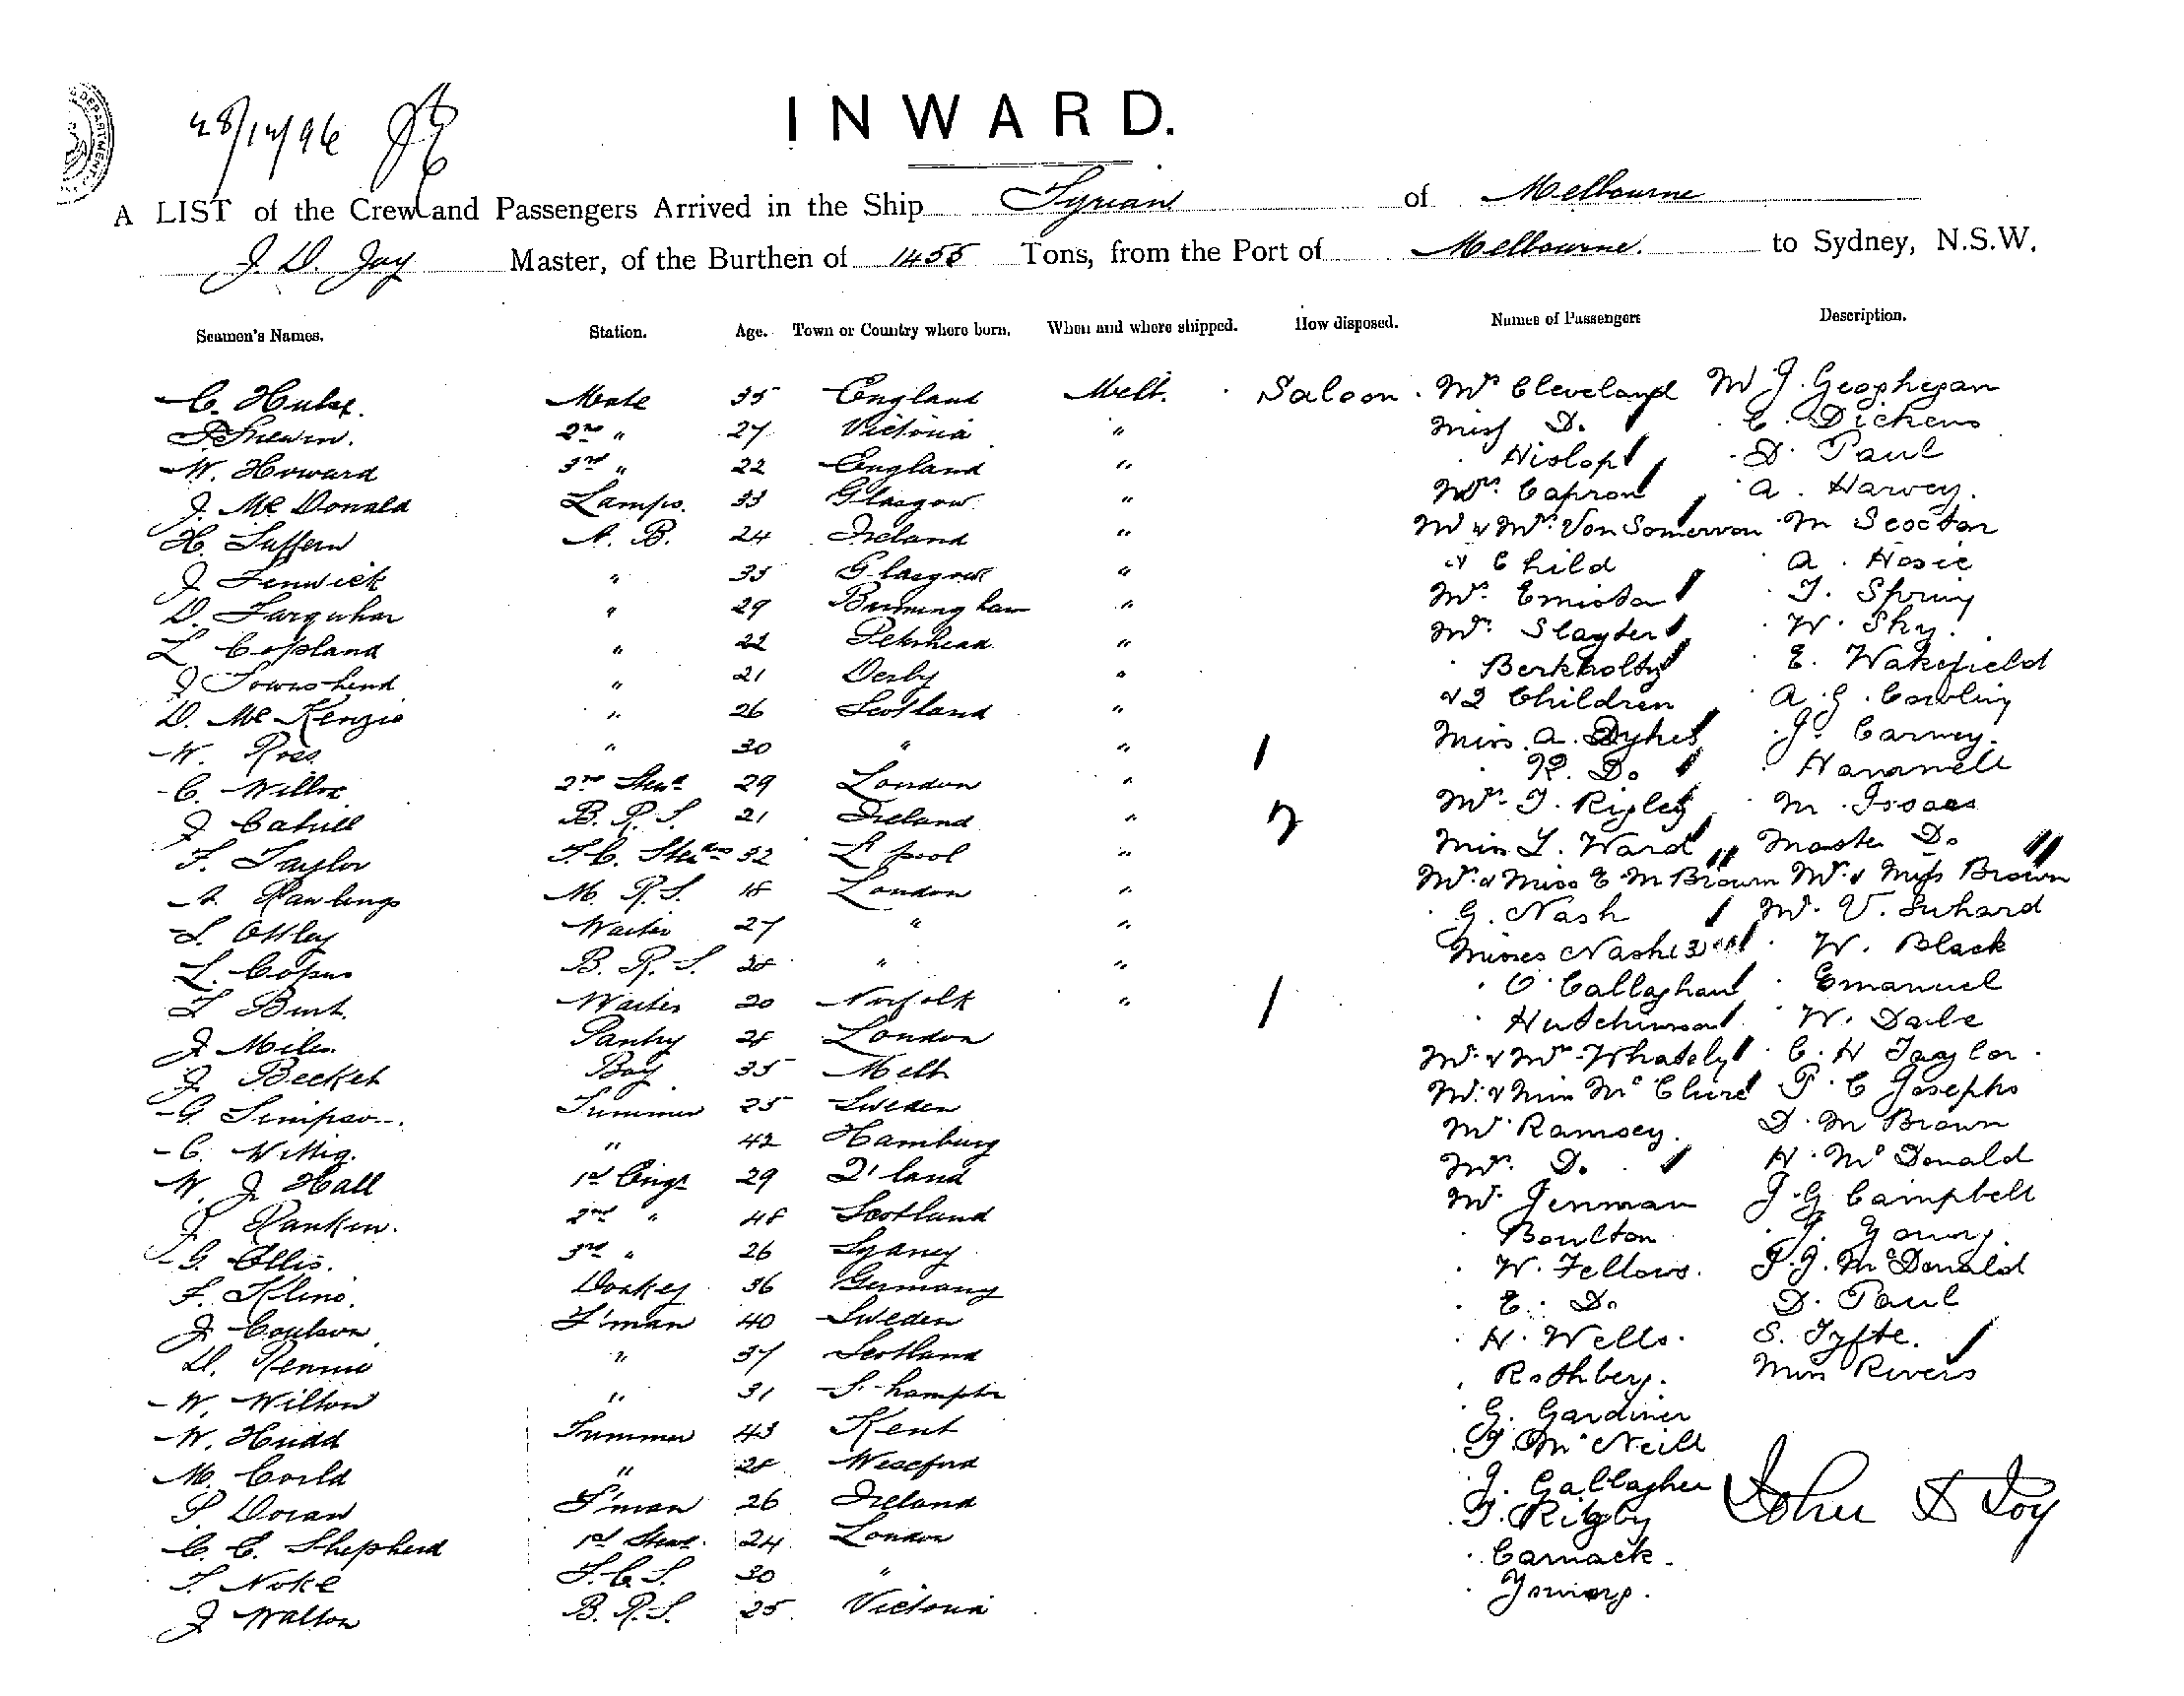 DEPARTMENT
28/12/96
INWARD.
A LIST of the Crew and Passengers Arrived in the Ship Syrian of Melbourne
J. D. Joy Master, of the Burthen of 1455 Tons, from the Port of Melbourne. to Sydney, N.S.W.
Seamen's Names. Station. Age. Town or Country where born. When and where shipped. How disposed. Names of Passengers Description.
C. Hulse. Mate 35 England Melb. Saloon. Mrs Cleveland Mr J. Geoghegan
2nd " 27 Victoria " Miss Do. E. Dickens
W. Howard 3rd " 22 England " Hislop D. Paul
J. McDonald Lamps. 33 Glasgow " Mrs. Capron A. Harvey.
H. Suffern A. B. 24 Ireland " Mr & Mrs. Von Somervon M
J Fenwick " 35 Glasgow " & Child A. Hosie
D. Farquhar " 29 Birmingham " Mrs. T. Spring
L Copland " 22 Peterhead " Mrs. Slayter W. Shy.
J Townshend " 21 Derby " Berkholtz E. Wakefield
D. McKenzie " 26 Scotland " & 2 Children A. G. Cowling
W. Ross " 30 " " 1 Miss A. Dykes J. Carney.
C. 2nd Stewd 29 London " R. Do Hammell
J Cahill B. R. S. 21 Ireland " 2 Mrs. T. Rigley M. Isaacs
F. Taylor F.C. 32 L'pool " Miss L. Ward Master Do
A. Rawlings M. R. S. 18 London " Mrs. & Miss E M Brown Mr. & Miss Brown
S. Ottley Waiter 27 " " G. Nash Mr. V. Suhard
L. Copus B. R. S. 28 " " Misses Nash (3) W. Black
L Burt. Waiter 20 Norfolk " 1 O'Callaghan Emanuel
J. Miles. Pantry 28 London Hutchinson W. Dale
J Becket Boy 35 Melb Mr. & Mrs. Whately C. H Taylor.
G. Simpson. Trimmer 25 Sweden Mr. & Miss McClure P. C Josephs
C. Wittig. " 42 Hamburg Mr Ramsey. D. M Brown
W. J. Hall 1st Engr 29 Q'land Mrs. Do. H. McDonald
J Rankin. 2nd " 48 Scotland Mr. Jenman J. G Campbell
G. Ellis. 3rd " 26 Sydney Boulton J. Young.
F. Kline. Donkey 36 Germany W. Fellows. P. J. McDonald
J Coulson F'man 40 Sweden E. Do D. Paul
D. Rennie " 37 Scotland H. Wells. S. Tyfte.
W. Wilton " 31 S'hampton Rothbery. Miss Rivers
W. Hudd Trimmer 43 Kent G. Gardiner
M. Corld " 28 Wexford J. McNeill
P Doran F'man 26 Ireland J. Gallagher John D Joy
C. C. Shepherd 1st Stewd. 24 London T. Rigby
T. Noke F. C. S. 30 " Carnack.
J Walton B. R. S. 25 Victoria Young.